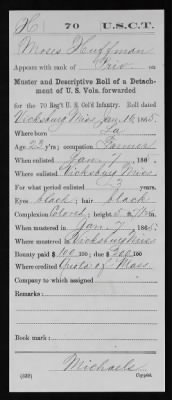 H | 70 | U.S.C.T.
Moses Huffman
Appears with rank of Priv. on
Muster and Descriptive Roll of a Detach-
ment of U. S. Vols. forwarded
for the 70 Reg't U. S. Col'd Infantry. Roll dated
Vicksburg Miss Jan. 10, 1865.
Where born La
Age 22 y'rs; occupation Farmer
When enlisted Jan. 7, 186
Where enlisted Vicksburg Miss.
For what period enlisted 3 years.
Eyes black; hair black
Complexion Colored; height 5 ft. in.
When mustered in Jan. 7, 1865.
Where mustered in Vicksburg Miss
Bounty paid $ 100 100; due $ 200 100
Where credited of Mass.
Company to which assigned
Remarks:
Book mark:
Michaels
(339) Copyist.